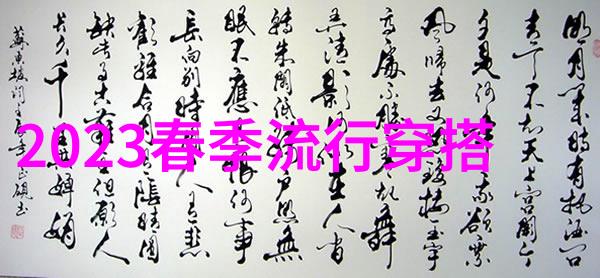 2023春季流行穿搭
明月几時有把酒问
青天不知天上宫阙今
夕是何年我欲乘
风归去又恐琼楼玉宇
高处不胜寒起舞
弄清影何似在人间
转朱阁低绮户照无
眠不應有恨何事
长向别時圆人有悲
欢离合月有阴晴圆
缺此事古难全但愿人
长久千里共婵娟